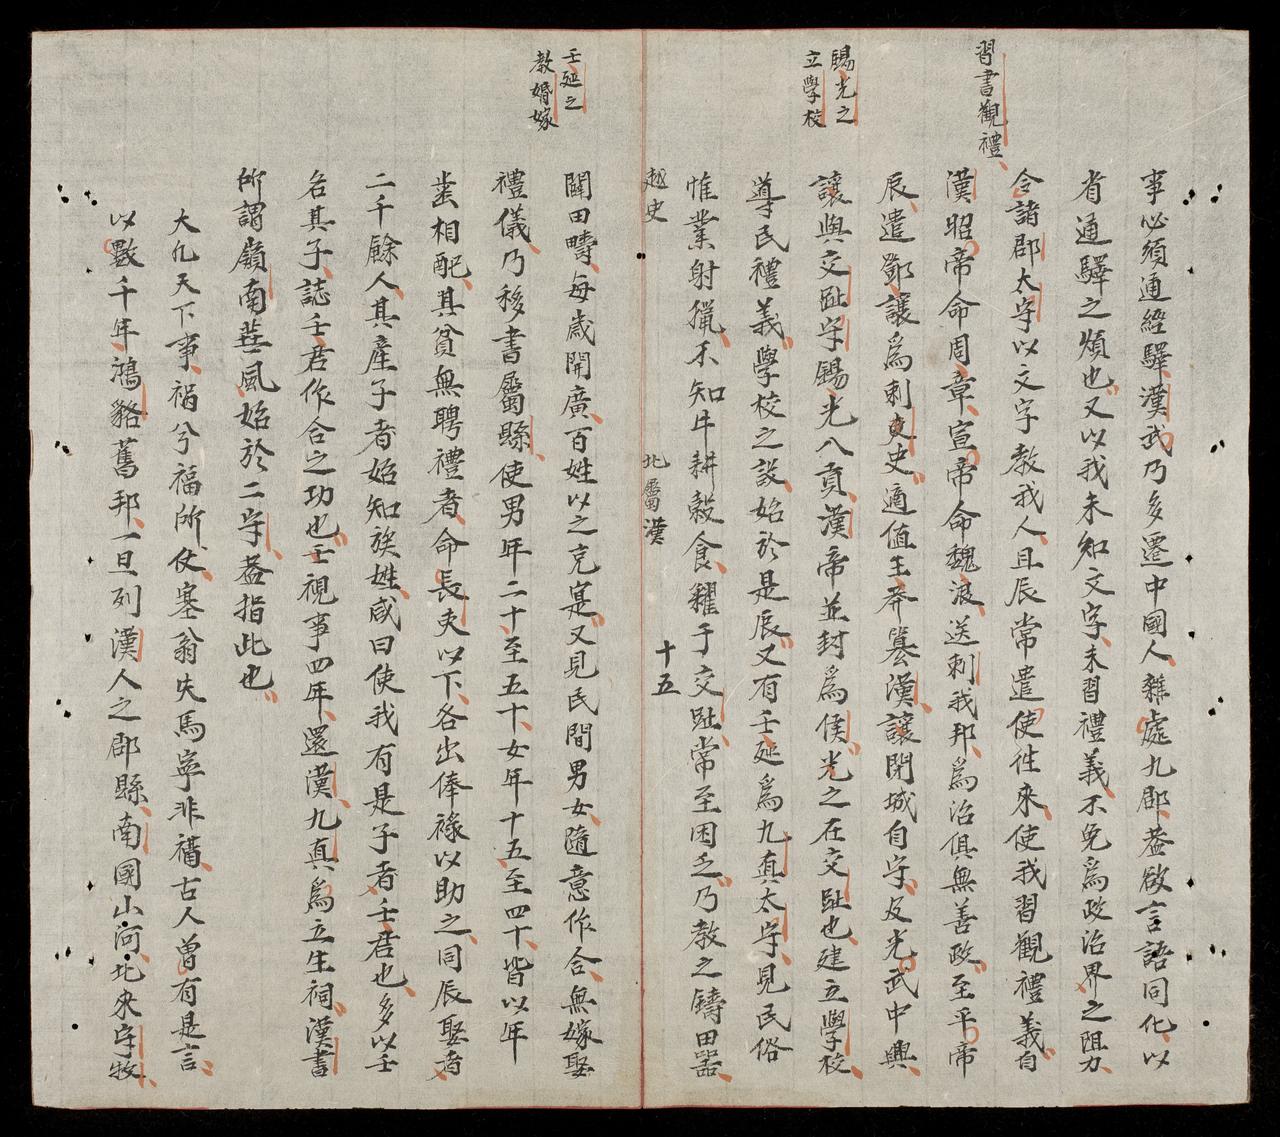 習書觀禮
事必須通經驛漢武乃多遷中國人雜處九郡葢欲言語同化以
省通驛之煩也又以我未知文字未習禮義不免爲政治界之阻力
令諸郡太守以文字教我人且辰常遣使徃來使我習觀禮義自
漢昭帝命周章宣帝命魏波送刺我邦爲治俱無善政至平帝
辰遣鄧讓爲刺吏史適值王莽簒漢讓閉城自守及光武中興
錫光之
立學校
讓與交趾守錫光入貢漢帝並封爲侯光之在交趾也建立學校
導民禮義學校之設始於是辰又有壬延爲九真太守見民俗
惟業射獵不知牛耕穀食糴于交趾常至困乏乃教之鑄田器
越史
北屬漢
十五
壬延之
教婚嫁
闢田疇每歲開廣百姓以之充寔又見民間男女隨意作合無嫁娶
禮儀乃移書屬縣使男年二十至五十女年十五至四十皆以年
歯相配其貧無聘禮者命長吏以下各出俸祿以助之同辰娶者
二千餘人其產子者始知族姓咸曰使我有是子者壬君也多以壬
名其子誌壬君作合之功也壬視事四年還漢九真爲立生祠漢書
所謂嶺南華風始於二守葢指此也
大凢天下事禍兮福所仗塞翁失馬寧非福古人曾有是言
以數千年鴻貉舊邦一旦列漢人之郡縣南國山河北來守牧